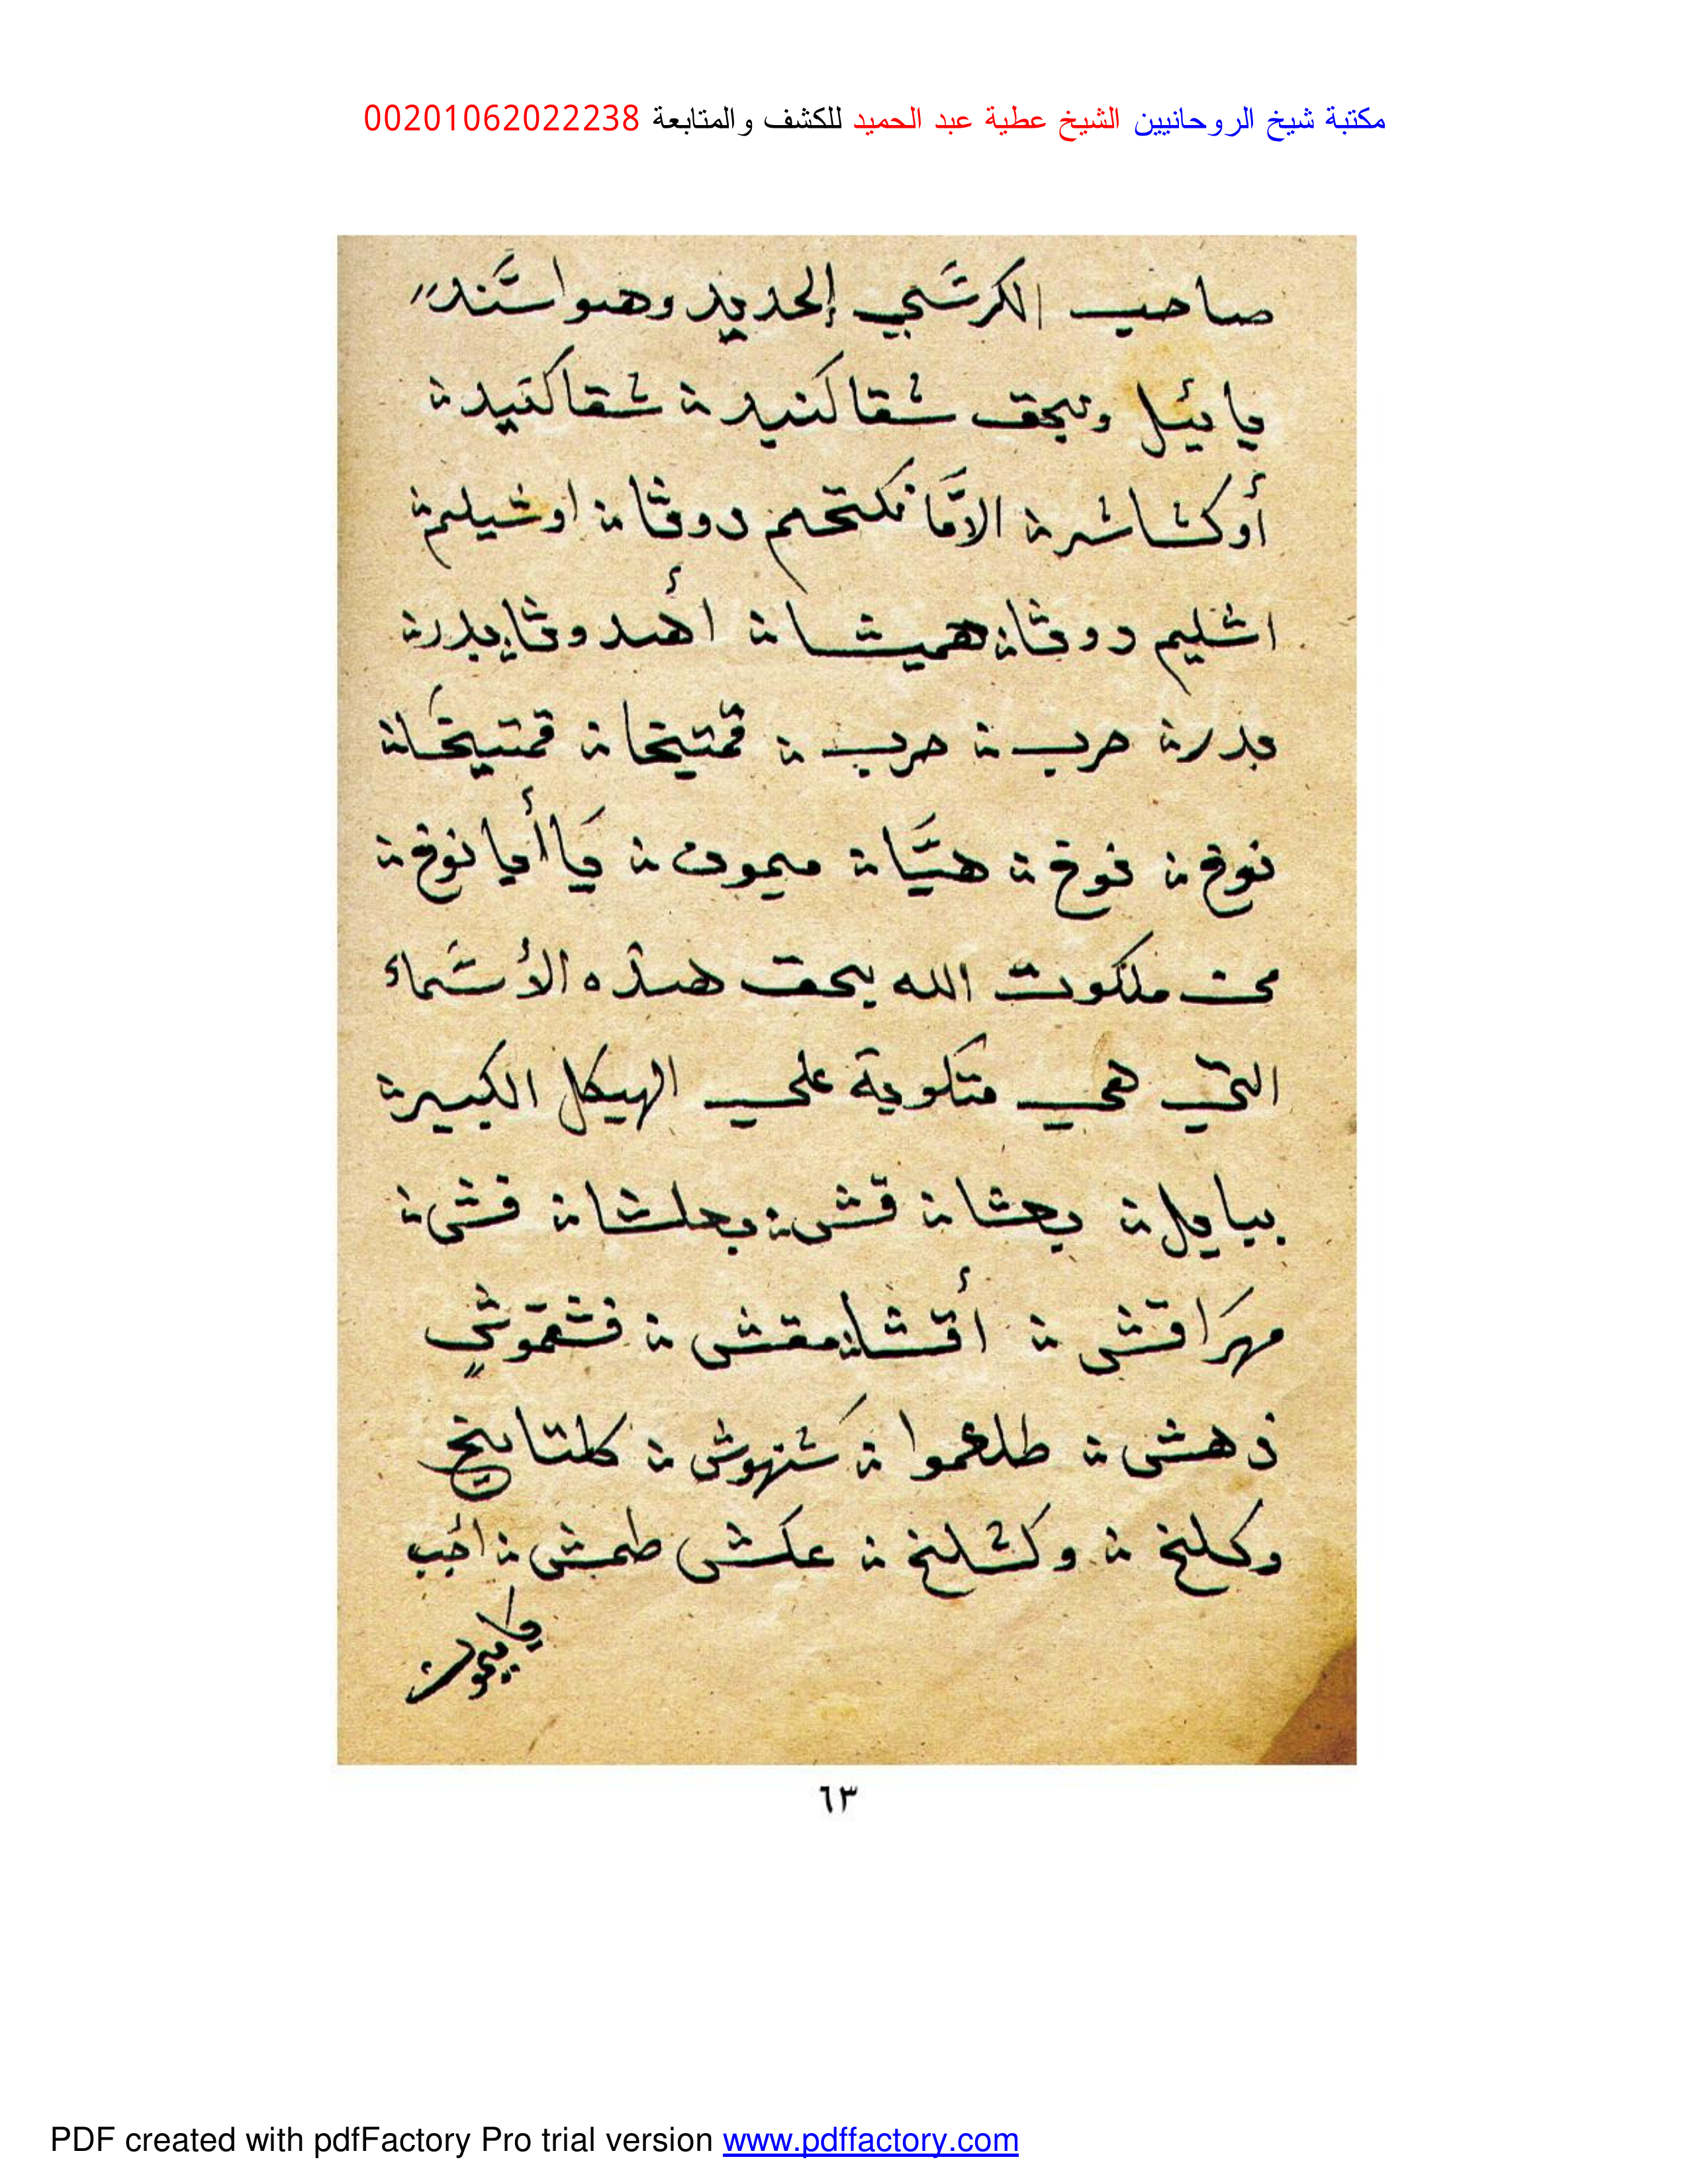 مكتبة شيخ الروحانيين الشيخ عطية عبد الحميد للكشف والمتابعة 00201062022238
صاحب الكرسي الحديد وهو استند
يايئل وبحق شقاكنيد شقاكنيد
أوكشاشر الامانكتحم دوثا اوشيلم
اشليم دوثا هميشا أهدوثا يدر
بدر حرب حرب قمتيخا قمتيخا
نوخ نوخ هيا ميمون يا أيا نوخ
تحت ملكوت الله بحق هذه الأسماء
التي هي متكوبة على الهيكل الكبير
ببابل بعشا قش بعلشا قش
مهراقش أقشا مقش فشقموش
ذهش طلعموا شنهوش كلتايخ
وكلنخ وكشلنخ عكش طمش أجب
يا ميمون
٦٣
PDF created with pdfFactory Pro trial version www.pdffactory.com